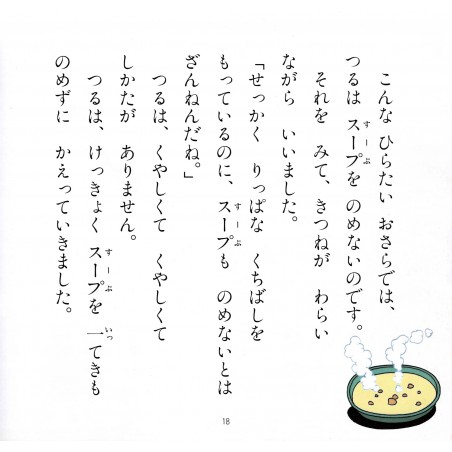 こんな ひらたい おさらでは、
つるは スープを のめないのです。
それを みて、きつねが わらい
ながら いいました。
「せっかく りっぱな くちばしを
もっているのに、スープも のめないとは
ざんねんだね。」
つるは、くやしくて くやしくて
しかたが ありません。
つるは、けっきょく スープを 一てきも
のめずに かえっていきました。
18